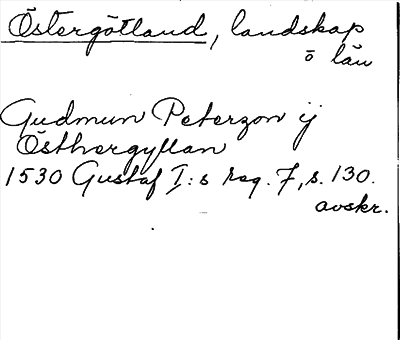 Östergötland, landskap
o län
Gudmun Peterzon ij
Östhergyllan
1530 Gustaf I:s reg. 7, s. 130.
avskr.